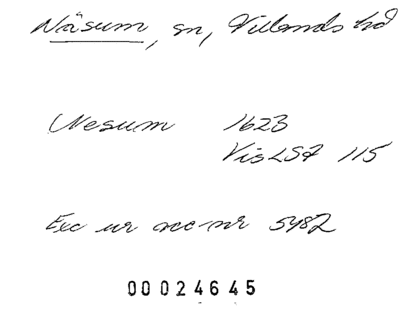 Näsum, sn, Villands hd
Nesum 1623
VisLSF 115
Exc ur acc-nr 5482
00024645